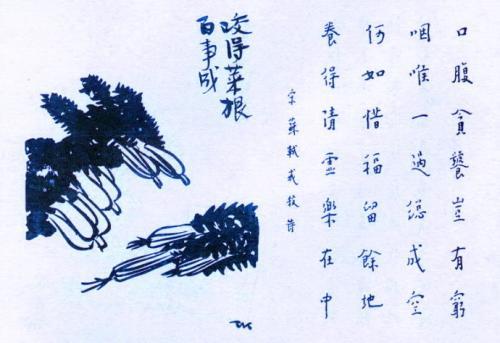 口腹貪饕豈有窮
咽喉一過總成空
何如惜福留餘地
養得清虛樂在中
宋 蘇軾戒殺詩
咬得菜根
百事成
TK